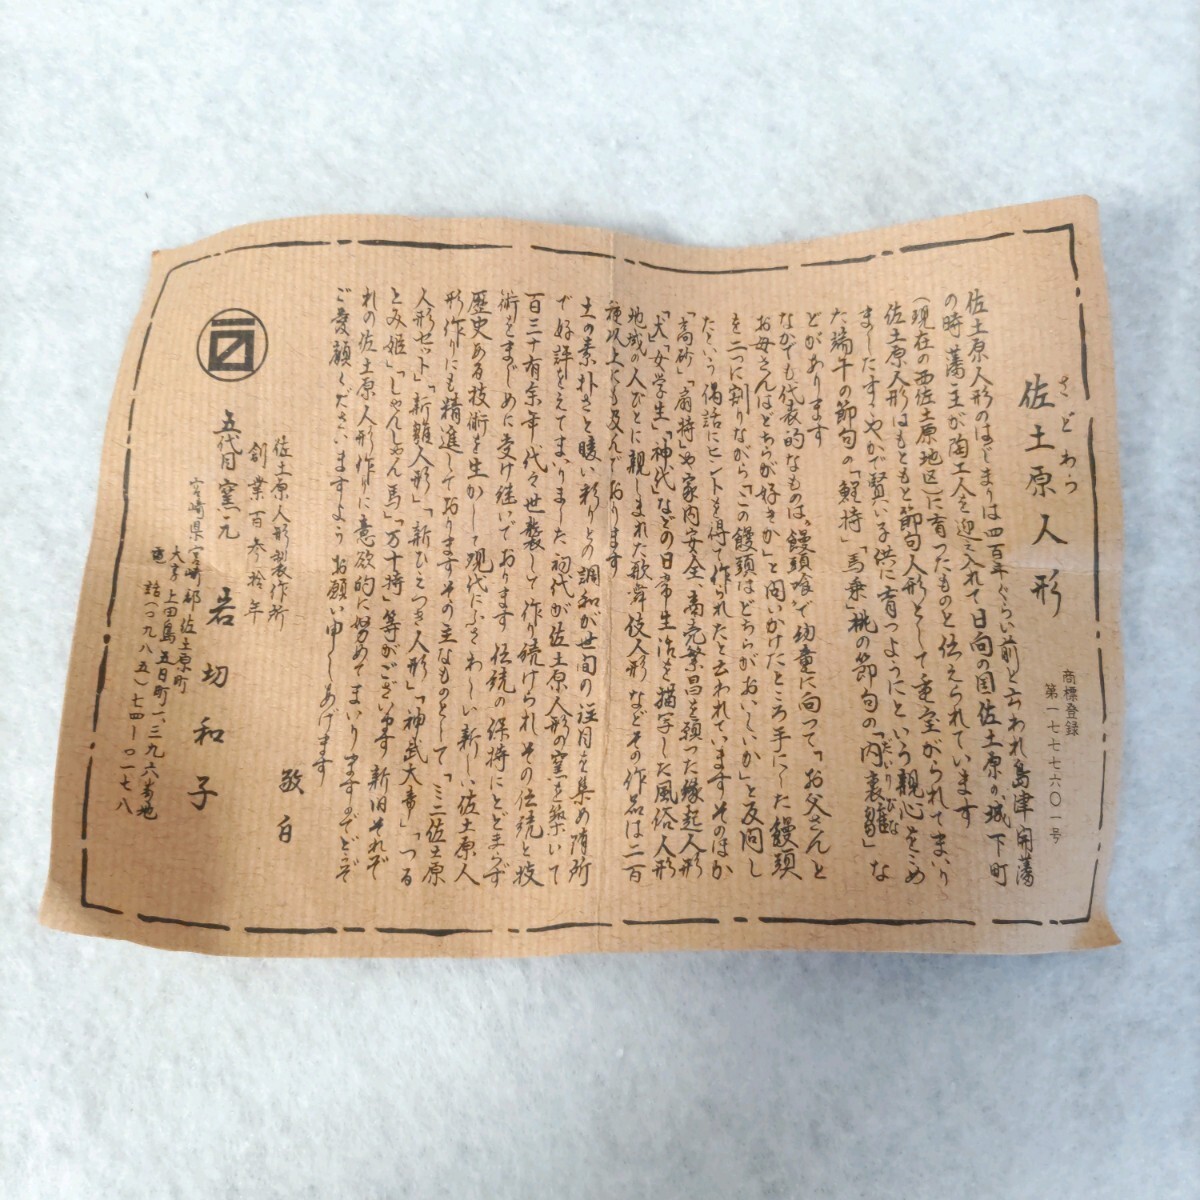 さどわら
佐土原人形
商標登録
第一七七七六〇一号
佐土原人形のはじまりは四百年ぐらい前と云われ島津開藩
の時藩主が陶工人を迎え入れて日向の国佐土原の城下町
(現在の西佐土原地区)に育ったものと伝えられています
佐土原人形はもともと節句人形として重宝がられてまいり
ましたすこやかで賢い子供に育つようにという親心をこめ
た端午の節句の「鯉持」「馬乗」桃の節句の「内裏雛」な
だいりびな
どがあります
なかでも代表的なものは〝饅頭喰〟で幼童に向って「お父さんと
お母さんはどちらが好きか」と問いかけたところ手にした饅頭
を二つに割りながら「この饅頭はどちらがおいしいか」と反問し
たという偶話にヒントを得て作られたと云われていますそのほか
「高砂」「扇持」や家内安全、商売繁昌を願った縁起人形
「犬」「女学生」「神代」などの日常生活を描写した風俗人形
地域の人びとに親しまれた歌舞伎人形などその作品は二百
種以上にも及んでおります
土の素朴さと暖い彩りとの調和が世間の注目を集め随所
で好評をえてまいりました初代が佐土原人形の窯を築いて
百三十有余年代々世襲して作り続けられその伝統と技
術をまじめに受け継いでおります伝統の保持にとどまらず
歴史ある技術を生かして現代にふさわしい新しい佐土原人
形作りにも精進しておりますその主なものとして「ミニ佐土原
人形セット」「新雛人形」「新ひえつき人形」「神武天皇」「つる
とみ姫」「しゃんしゃん馬」「万十持」等がございます新旧それぞ
れの佐土原人形作りに意欲的に努めてまいりますのでどうぞ
ご愛顧くださいますようお願い申しあげます
敬白
佐土原人形製作所
創業百参拾年
五代目窯元 岩切和子
宮崎県宮崎郡佐土原町
大字上田島五日町一、三九六番地
電話(〇九八五)七四-〇一七八